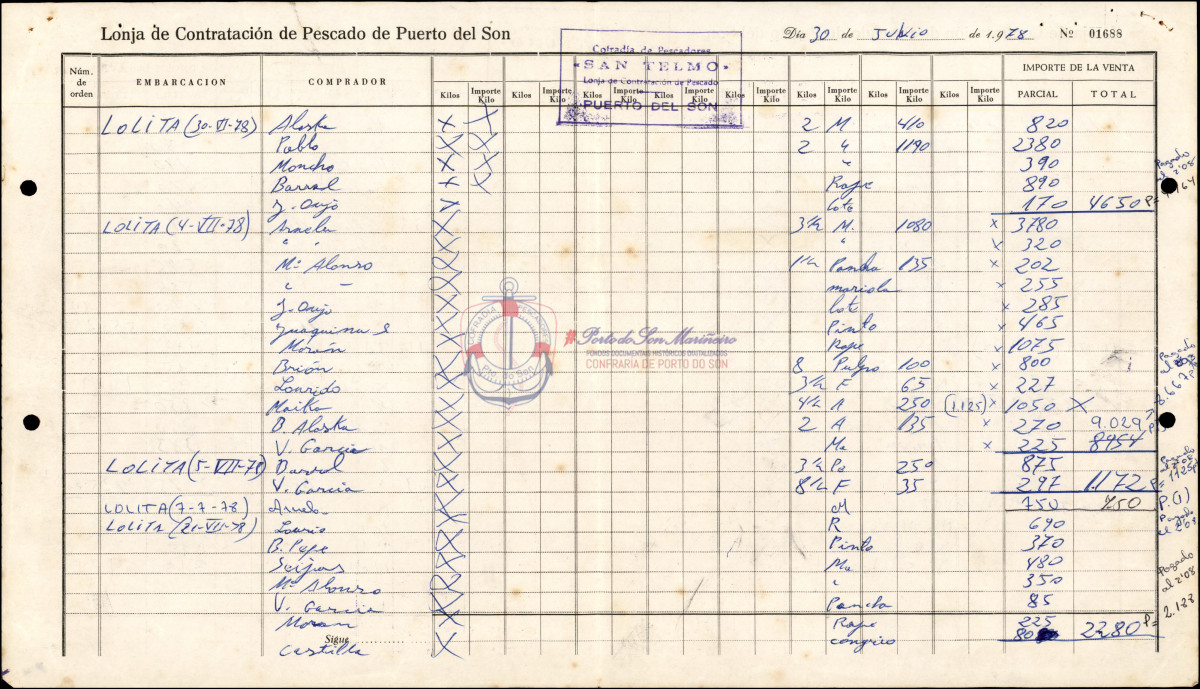 Lonja de Contratación de Pescado de Puerto del Son
Día 30 de JUNIO de 1.978 Nº 01688
Cofradía de Pescadores
"SAN TELMO"
Lonja de Contratación de Pescado
PUERTO DEL SON
IMPORTE DE LA VENTA
Núm. de orden EMBARCACION COMPRADOR Kilos Importe Kilo Kilos Importe Kilo Kilos Importe Kilo Kilos Importe Kilo Kilos Importe Kilo Kilos Importe Kilo Kilos Importe Kilo PARCIAL TOTAL
LOLITA (30-VI-78) Alaska X X 2 M. 410 820
Pablo X X 2 " 1190 2380
Moncho X X " 390
Barral X X Rape 890
J. Oujo X Coto 170 4650 P=
Pagado al 2'08
LOLITA (4-VII-78) X 3 1/2 M. 1080 x 3780
" " X " x 320
Mª Alonso X 1 1/2 Pancha 135 x 202
" - X mariola x 255
J. Oujo X x 285
X Pinto x 465
Morán X Rape x 1075
Brión X 8 Pulpo 100 x 800
Lourido X 3 1/2 F 65 x 227
Maika X 4 1/2 A 250 (1.125) x 1050 X
B. Alaska X 2 A 135 x 270 9.029
V. Garcia X Ma x 225 8954
LOLITA (5-VII-78) Barral X 3 1/2 Pa 250 875
V. Garcia X 8 1/2 F 35 297 1.172 P= 1125
LOLITA (7-7-78) X M 750 750 P.(1)
LOLITA (21-VII-78) X R 690
B. Pepe X Pinto 370
Seijas X Ma 480
Mª Alonso X " 350
V. Garcia X Pancha 85
Moran X Rape 225 2280 P= 2.188
Pagado al 2'08
Sigue
Castilla X congrio 80
COFRADÍA
Pto. do Son
#Porto do Son Mariñeiro
FONDOS DOCUMENTAIS HISTÓRICOS DIGITALIZADOS
CONFRARIA DE PORTO DO SON